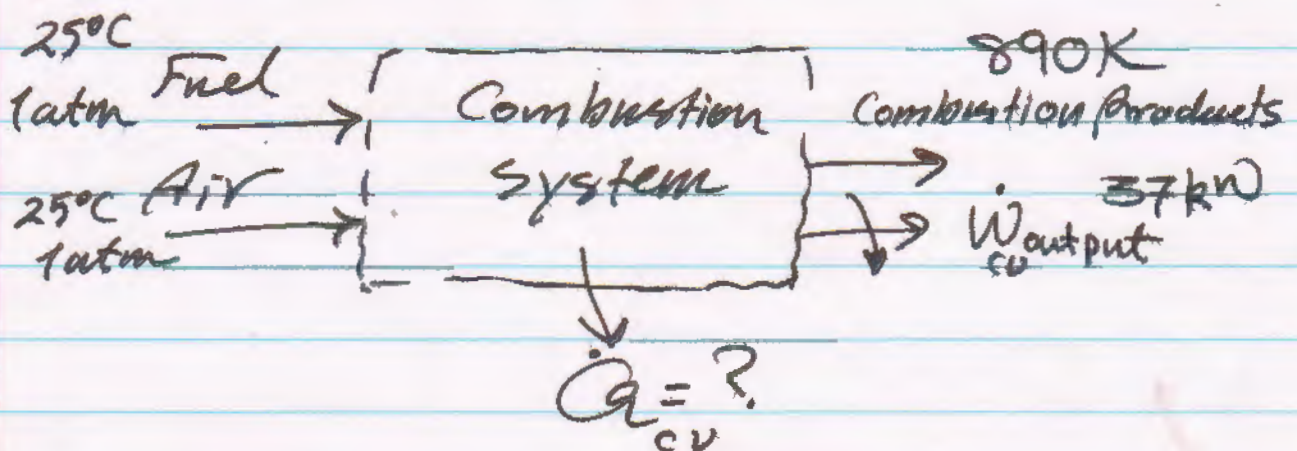 25°C
1atm Fuel
25°C Air
1atm
Combustion
system
890K
Combustion Products
Ẇ output 37kW
cv
Q̇ = ?
cv